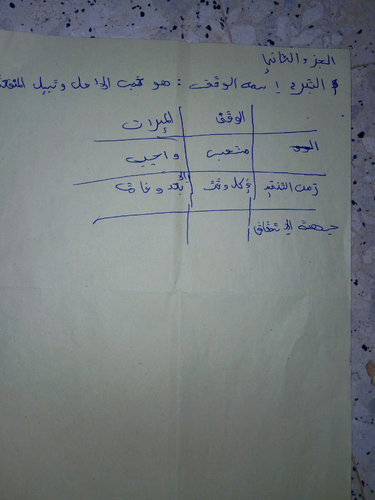 الجزء الثاني
التبرع اسمه الوقف : هو حبس الاصل وتسبيل المنفعة
الوقف الميراث
مستحب واجب
زمن التنفيذ في كل وقت بعد وفاته
جهة الانتفاع